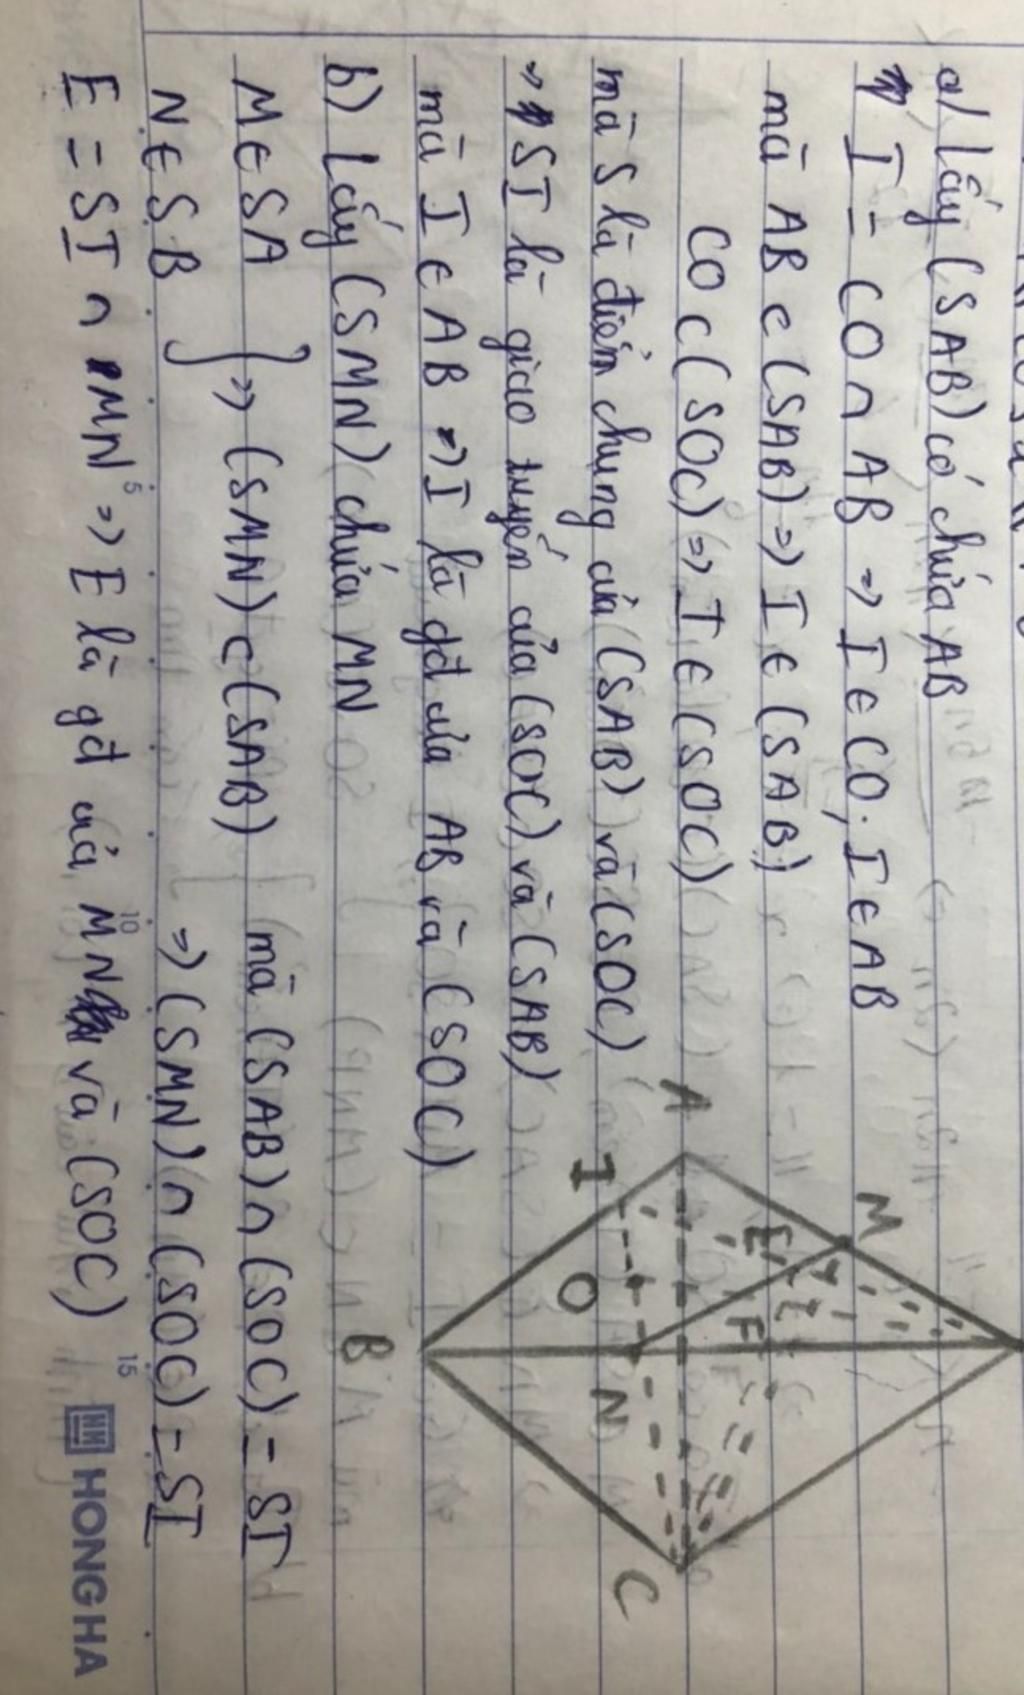 a) Lấy (SAB) có chứa AB
I = CO ∩ AB => I ∈ CO, I ∈ AB
mà AB ⊂ (SAB) => I ∈ (SAB)
CO ⊂ (SOC) => I ∈ (SOC)
mà S là điểm chung của (SAB) và (SOC)
=> SI là giao tuyến của (SOC) và (SAB)
mà I ∈ AB => I là gđ của AB và (SOC)
b) Lấy (SMN) chứa MN
M ∈ SA
N ∈ SB } => (SMN) ⊂ (SAB) mà (SAB) ∩ (SOC) = SI
=> (SMN) ∩ (SOC) = SI
E = SI ∩ MN => E là gđ của MN và (SOC)
A
M
I
E
O
F
B
N
C
5
10
15
HM HONG HA